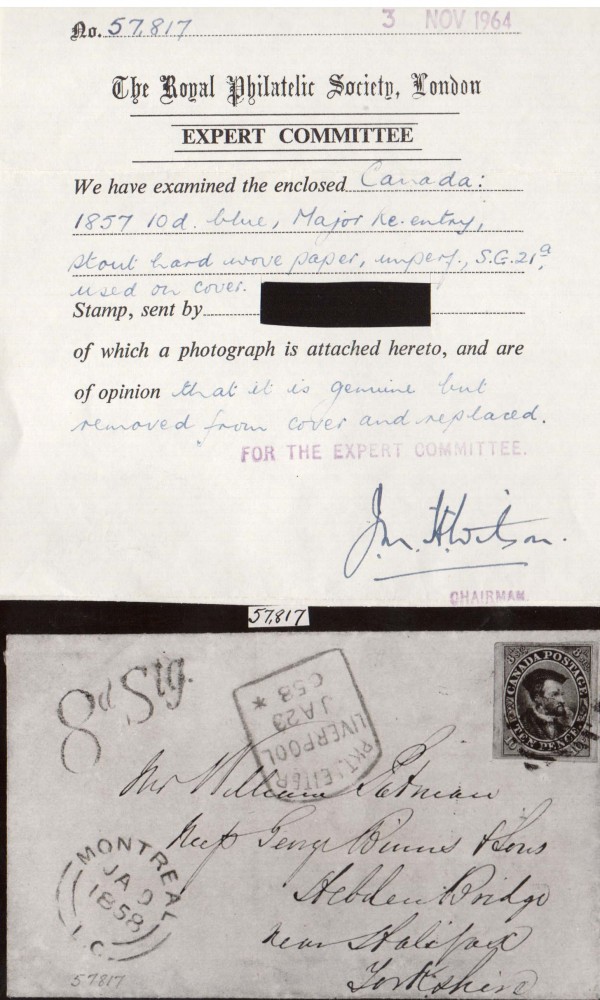 No. 57,817
3 NOV 1964
The Royal Philatelic Society, London
EXPERT COMMITTEE
We have examined the enclosed Canada:
1857 10d. blue, Major Re-entry,
stout hard wove paper, imperf., S.G.21a,
used on cover.
Stamp, sent by
of which a photograph is attached hereto, and are
of opinion that it is genuine but
removed from cover and replaced.
FOR THE EXPERT COMMITTEE.
CHAIRMAN.
57,817
8d Stg.
CANADA POSTAGE
TEN PENCE
PKT. LETTER
LIVERPOOL
JA 23
C58 *
Mr William
George & Sons
Hebden Bridge
near Halifax
Yorkshire
MONTREAL
JA 9
1858
L.C.
57817